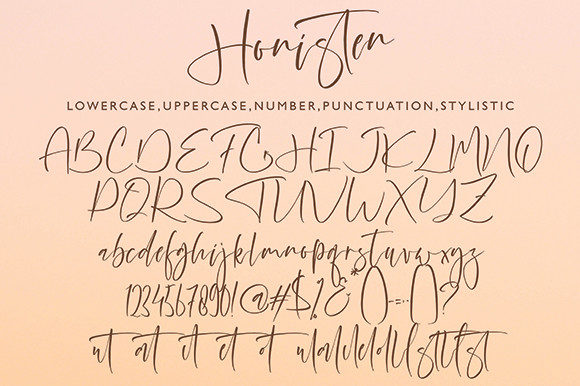 Honisten
LOWERCASE,UPPERCASE,NUMBER,PUNCTUATION,STYLISTIC
ABCDEFGHIJKLMNO
PQRSTUVWXYZ
abcdefghijklmnopqrstuvwxyz
1234567890!@#$%
ut at it et ot